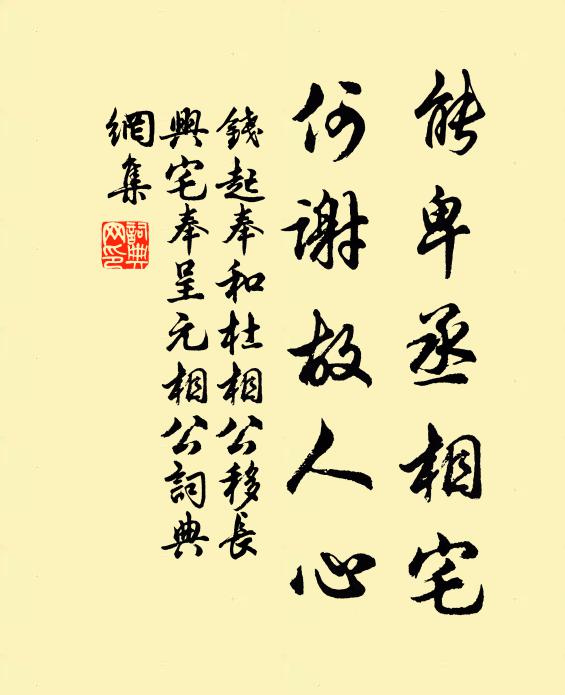 能卑丞相宅
何謝故人心
錢起奉和杜相公移長
興宅奉呈元相公詞典
網集
詞典
网印